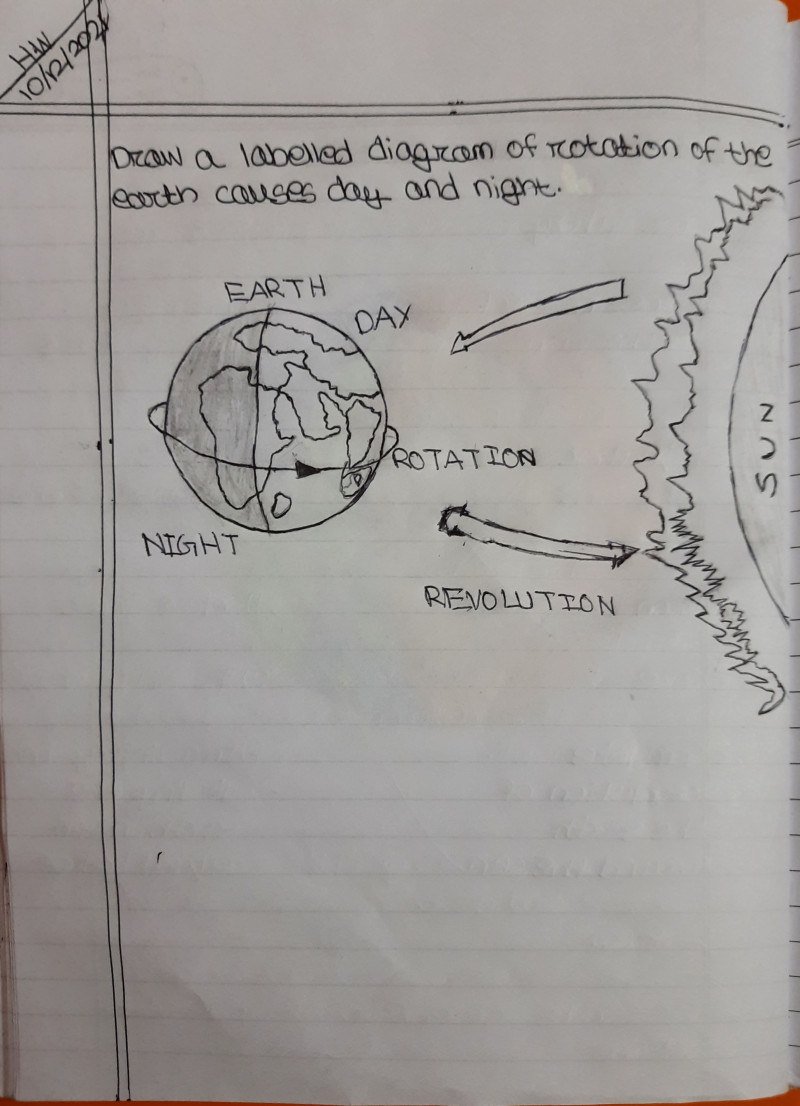 HW
10/12/2021
Draw a labelled diagram of rotation of the
earth causes day and night.
EARTH
DAY
SUN
ROTATION
NIGHT
REVOLUTION